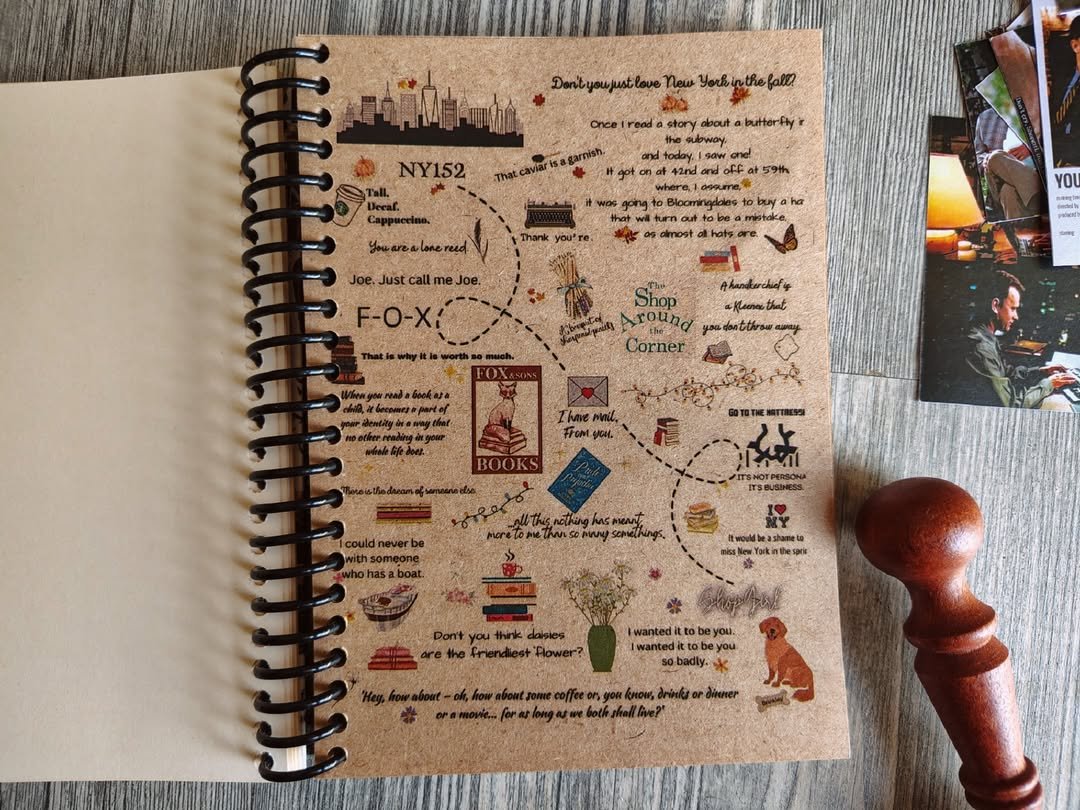 Don't you just love New York in the fall?
Once I read a story about a butterfly i
the subway,
and today, I saw one!
It got on at 42nd and off at 59th
where, I assume,
it was going to Bloomingdales to buy a ha
that will turn out to be a mistake,
as almost all hats are.
NY152
That caviar is a garnish.
Tall.
Decaf.
Cappuccino.
Thank you're.
You are a lone reed.
Joe. Just call me Joe.
F-O-X
A bouquet of
sharpened pencils
The
Shop
Around
the
Corner
A handkerchief is
a Kleenex that
you don't throw away.
That is why it is worth so much.
FOX & SONS
BOOKS
When you read a book as a
child, it becomes a part of
your identity in a way that
no other reading in your
whole life does.
I have mail.
From you.
GO TO THE MATTRESS!
IT'S NOT PERSONA
IT'S BUSINESS.
Pride
and
Prejudice
There is the dream of someone else.
...all this nothing has meant
more to me than so many somethings.
I ♥
NY
It would be a shame to
miss New York in the sprin
I could never be
with someone
who has a boat.
Shop Girl
Don't you think daisies
are the friendliest flower?
I wanted it to be you.
I wanted it to be you
so badly.
Brinkley
'Hey, how about – oh, how about some coffee or, you know, drinks or dinner
or a movie... for as long as we both shall live?'
YOU